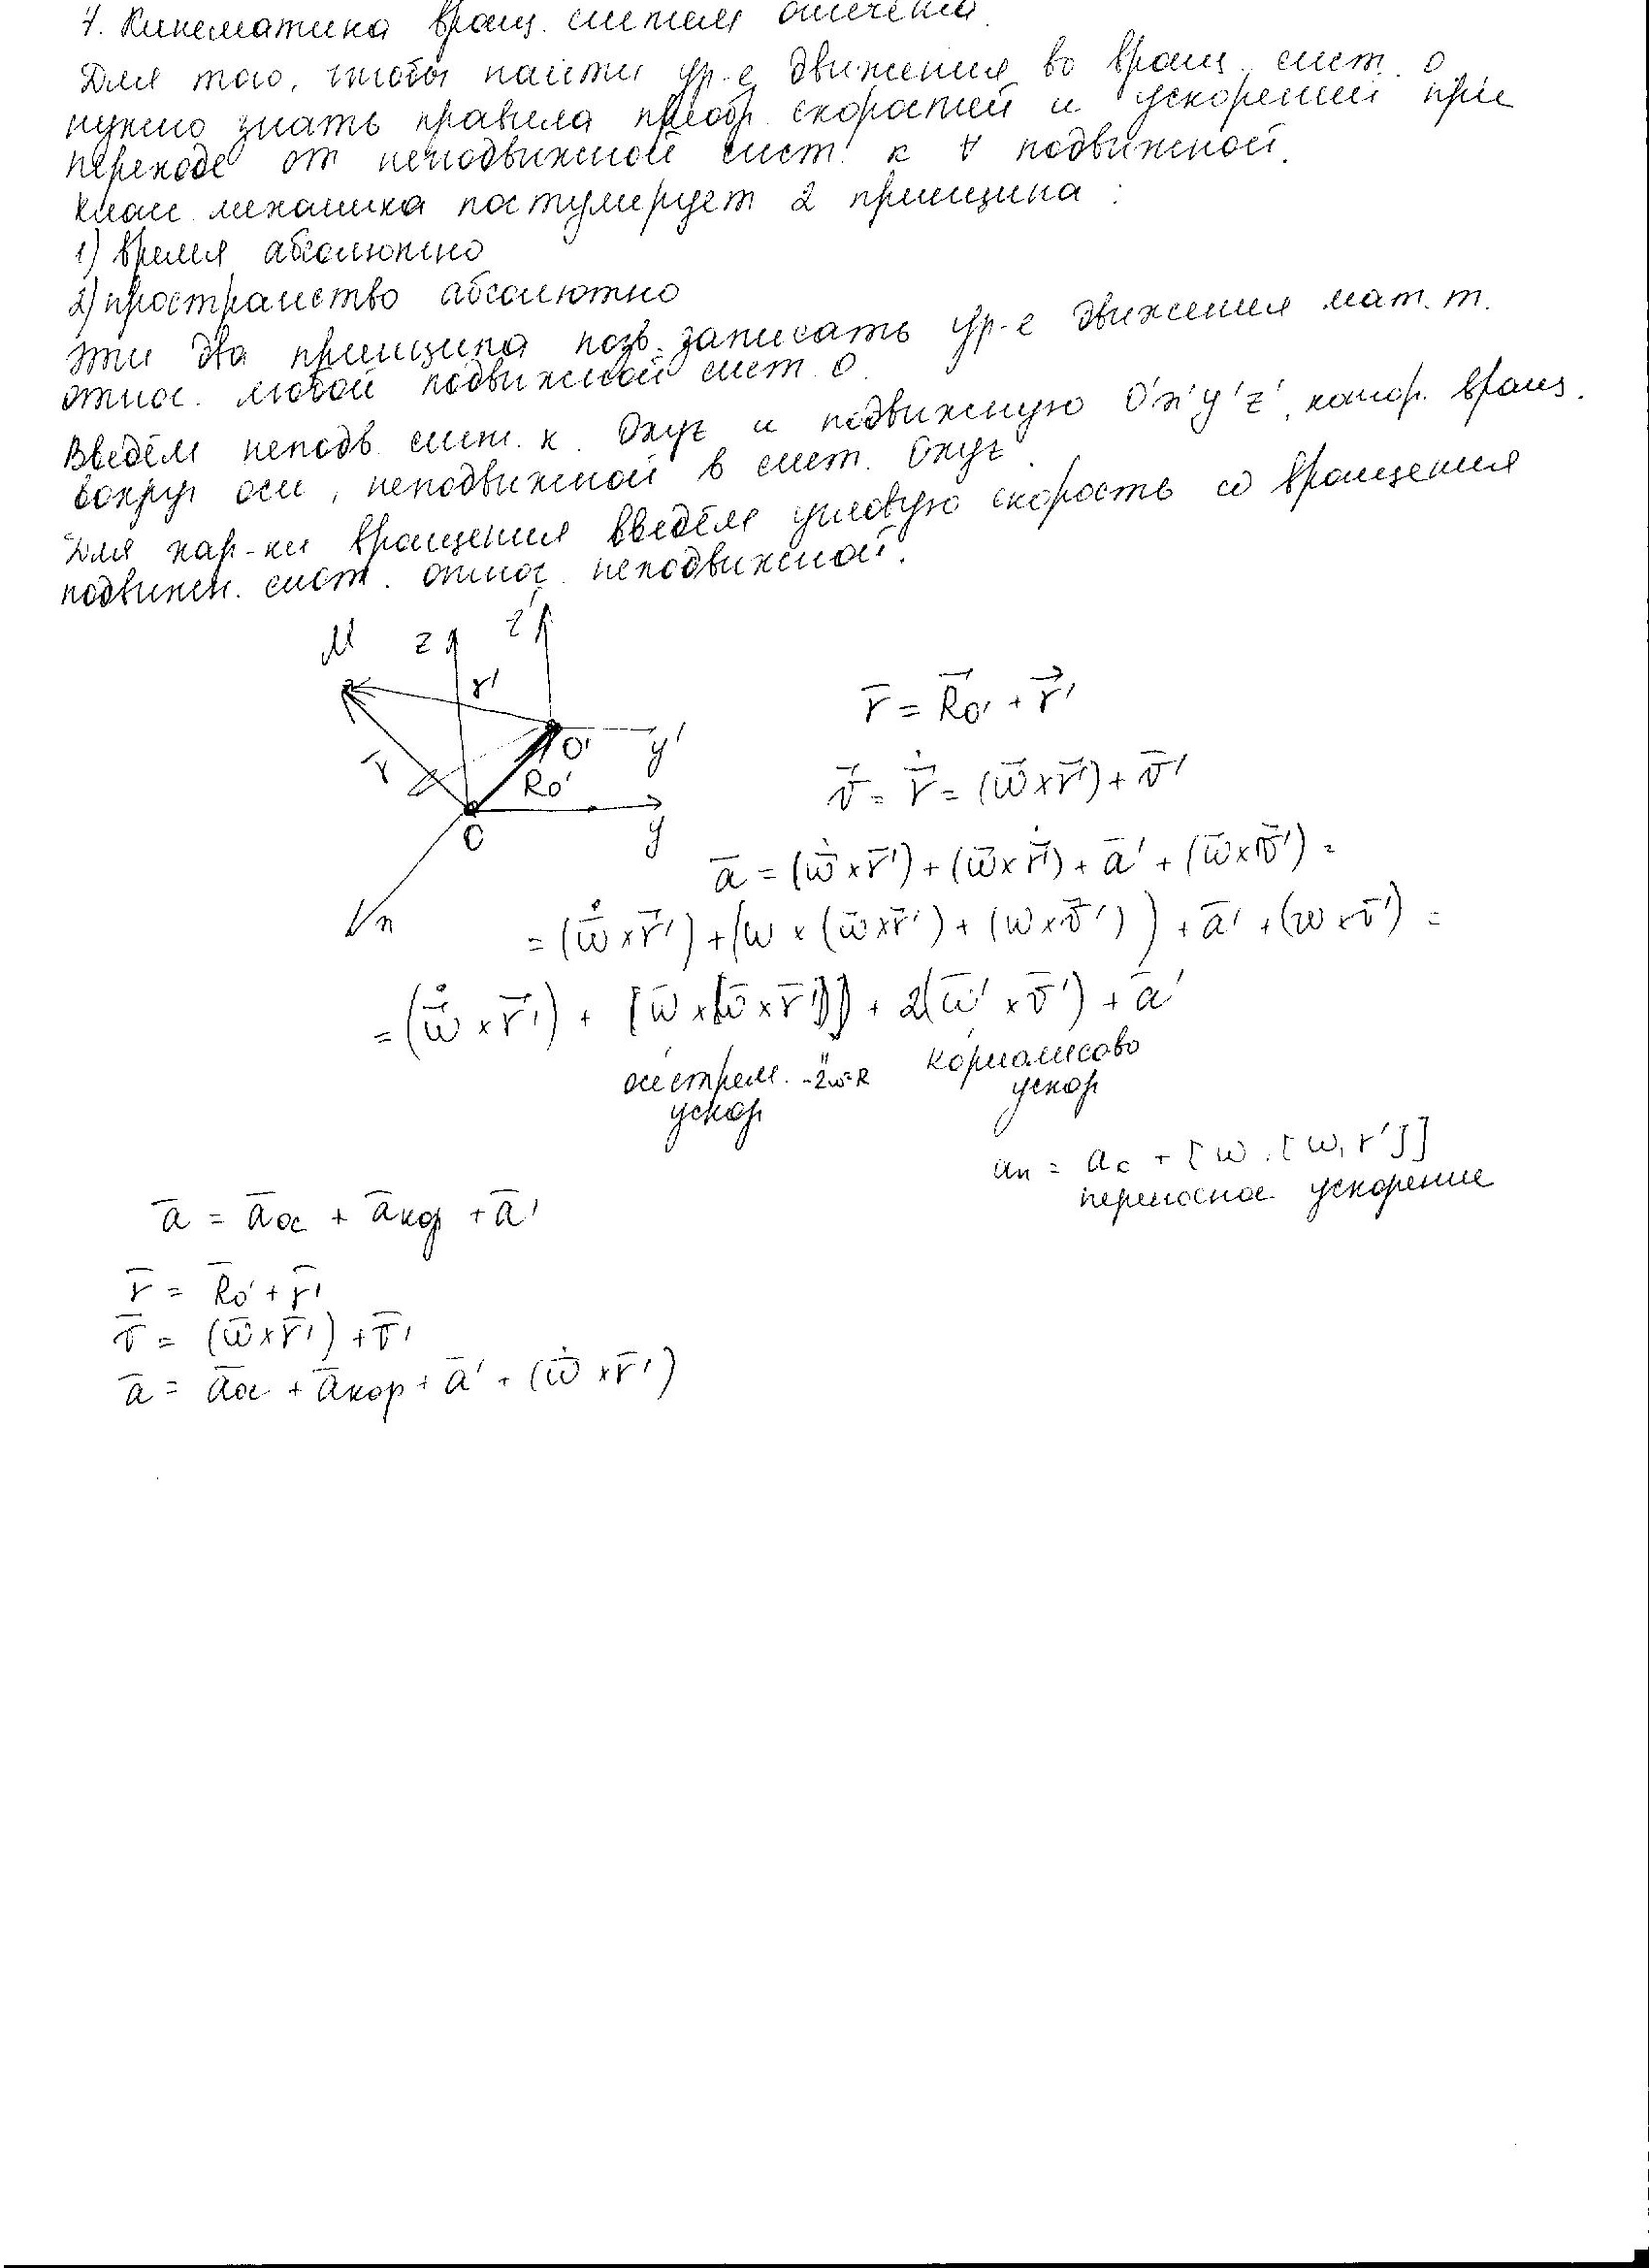 7. Кинематика вращ. систем отсчёта.
Для того, чтобы найти ур-е движения во вращ. сист. о
нужно знать правила преобр. скоростей и ускорений при
переходе от неподвижной сист. к ∀ подвижной.
Класс. механика постулирует 2 принципа:
1) время абсолютно
2) пространство абсолютно
Эти два принципа позв. записать ур-е движения мат. т.
относ. любой подвижной сист. О.
Введём неподв. сист. к. Oxyz и подвижную O'x'y'z', котор. вращ.
вокруг оси, неподвижной в сист. Oxyz.
Для хар-ки вращения введём угловую скорость ω вращения
подвижн. сист. относ. неподвижной.
M z z'
r'
r̄ = R̄o' + r⃗'
O' y'
r̄ Ro'
v̄ = ṙ = (ω̄ × r̄') + v̄'
O y
ā = (ω̇ × r̄') + (ω̄ × ṙ') + ā' + (ω̄ × v̄') =
x
= (ω̇ × r̄') + (ω × (ω̄ × r̄') + (ω × v̄')) + ā' + (ω × v̄') =
= (ω̇ × r̄') + [ω̄ × [ω̄ × r̄']] + 2(ω̄' × v̄') + ā'
осестрем. -2ω²R кориолисово
ускор ускор
aп = aс + [ω, [ω, r']]
переносное ускорение
ā = āос + āкор + ā'
r̄ = R̄o' + r̄'
v̄ = (ω̄ × r̄') + v̄'
ā = āос + āкор + ā' + (ω̇ × r̄')